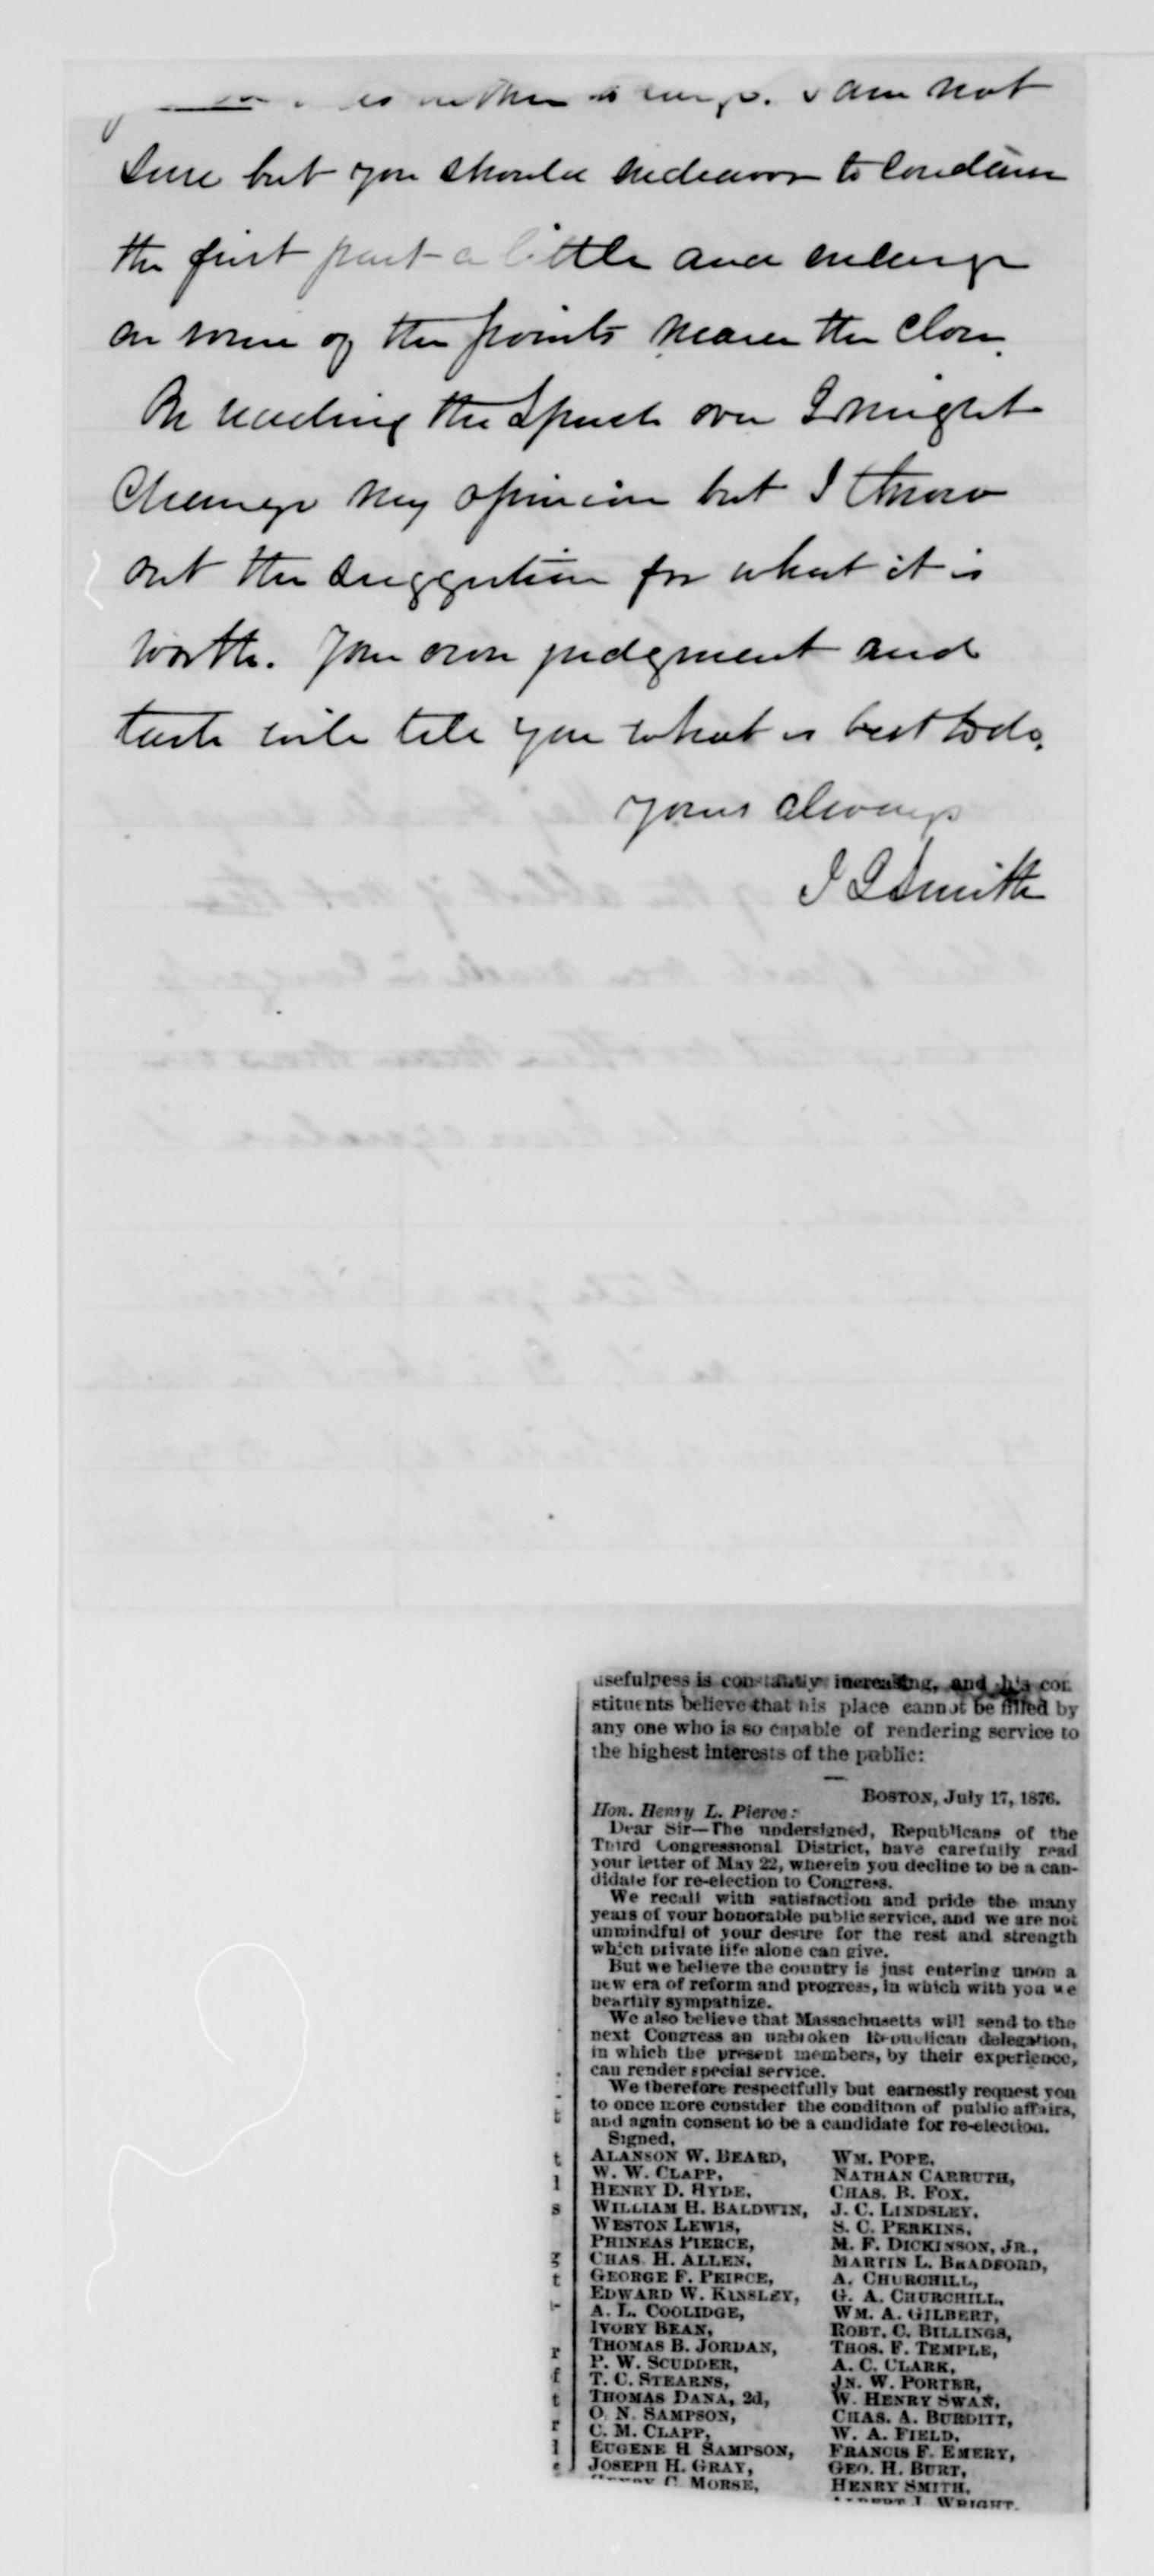 I am not
sure but you should endeavor to condense
the first part a little and enlarge
on some of the points nearer the close.
On reading the speech over I might
change my opinion but I throw
out the suggestion for what it is
worth. Your own judgment and
taste will tell you what is best to do.
Yours always
J G Smith
usefulness is constantly increasing, and his con
stituents believe that his place cannot be filled by
any one who is so capable of rendering service to
the highest interests of the public:
BOSTON, July 17, 1876.
Hon. Henry L. Pierce:
Dear Sir—The undersigned, Republicans of the
Third Congressional District, have carefully read
your letter of May 22, wherein you decline to be a can-
didate for re-election to Congress.
We recall with satisfaction and pride the many
years of your honorable public service, and we are not
unmindful of your desire for the rest and strength
which private life alone can give.
But we believe the country is just entering upon a
new era of reform and progress, in which with you we
heartily sympathize.
We also believe that Massachusetts will send to the
next Congress an unbroken Republican delegation,
in which the present members, by their experience,
can render special service.
We therefore respectfully but earnestly request you
to once more consider the condition of public affairs,
and again consent to be a candidate for re-election.
Signed,
ALANSON W. BEARD, WM. POPE,
W. W. CLAPP, NATHAN CARRUTH,
HENRY D. HYDE, CHAS. B. FOX,
WILLIAM H. BALDWIN, J. C. LINDSLEY,
WESTON LEWIS, S. C. PERKINS,
PHINEAS PIERCE, M. F. DICKINSON, JR.,
CHAS. H. ALLEN, MARTIN L. BRADFORD,
GEORGE F. PEIRCE, A. CHURCHILL,
EDWARD W. KINSLEY, G. A. CHURCHILL,
A. L. COOLIDGE, WM. A. GILBERT,
IVORY BEAN, ROBT. C. BILLINGS,
THOMAS B. JORDAN, THOS. F. TEMPLE,
P. W. SCUDDER, A. C. CLARK,
T. C. STEARNS, JN. W. PORTER,
THOMAS DANA, 2d, W. HENRY SWAN,
O. N. SAMPSON, CHAS. A. BURDITT,
C. M. CLAPP, W. A. FIELD,
EUGENE H. SAMPSON, FRANCIS F. EMERY,
JOSEPH H. GRAY, GEO. H. BURT,
C. MORSE, HENRY SMITH,
J. WRIGHT.